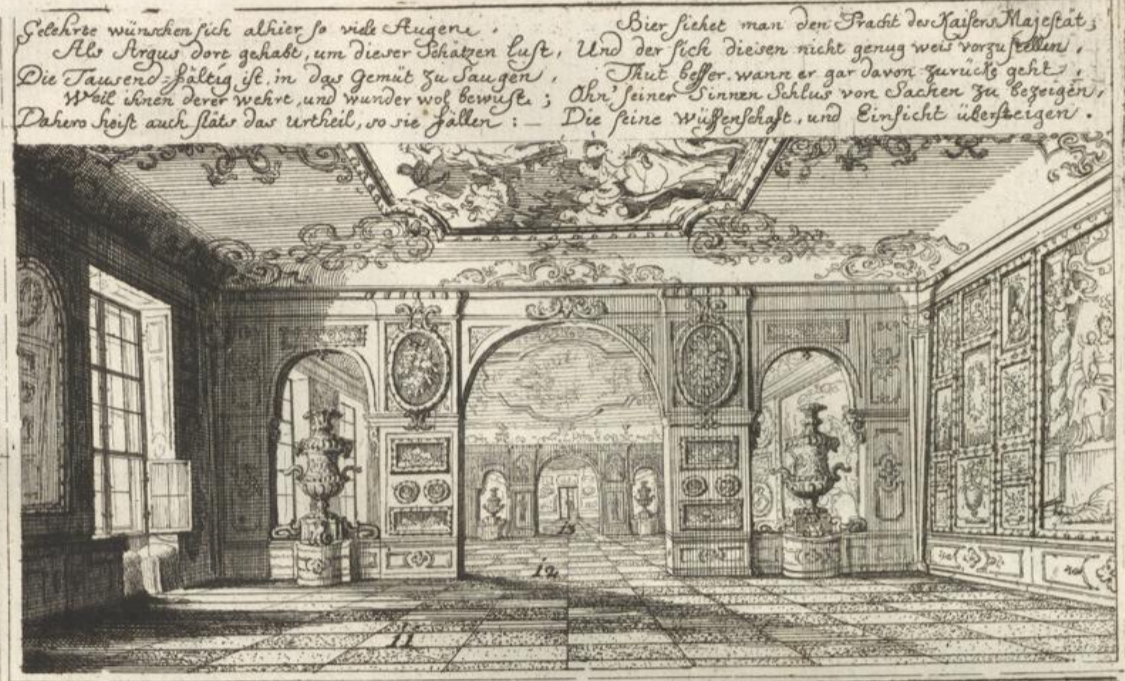 Gelehrte wünschen sich alhier so viele Augen,
Als Argus dort gehabt, um dieser Schätzen lust,
Die Tausend-fältig ist, in das Gemüt zu Saugen,
Weil ihnen derer wehrt, und wunder wol bewust;
Dahero heist auch stäts das Urtheil, so sie fällen:
Hier siehet man den Pracht des Kaisers Majestät;
Und der sich diesen nicht genug weis vorzustellen,
Thut besser, wann er gar davon zurücke geht,
Ohn' seiner Sinnen Schlus von Sachen zu bezeigen,
Die seine Wüssenschaft, und Einsicht übersteigen.
13
12
11